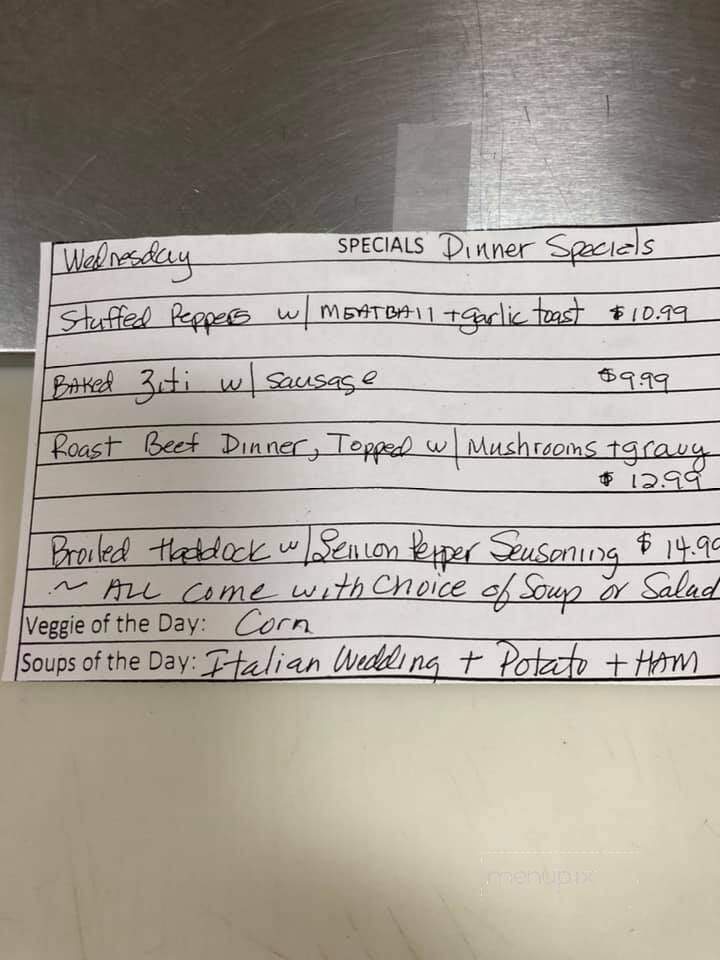 Wednesday SPECIALS Dinner Specials
Stuffed Peppers w/ MEATBAll + garlic toast $10.99
BAKed Ziti w/ Sausage $9.99
Roast Beef Dinner, Topped w/ Mushrooms + gravy
$ 12.99
Broiled Haddock w/ Lemon Pepper Seasoning $ 14.99
~ ALL come with Choice of Soup or Salad
Veggie of the Day: Corn
Soups of the Day: Italian Wedding + Potato + HAM
menupix